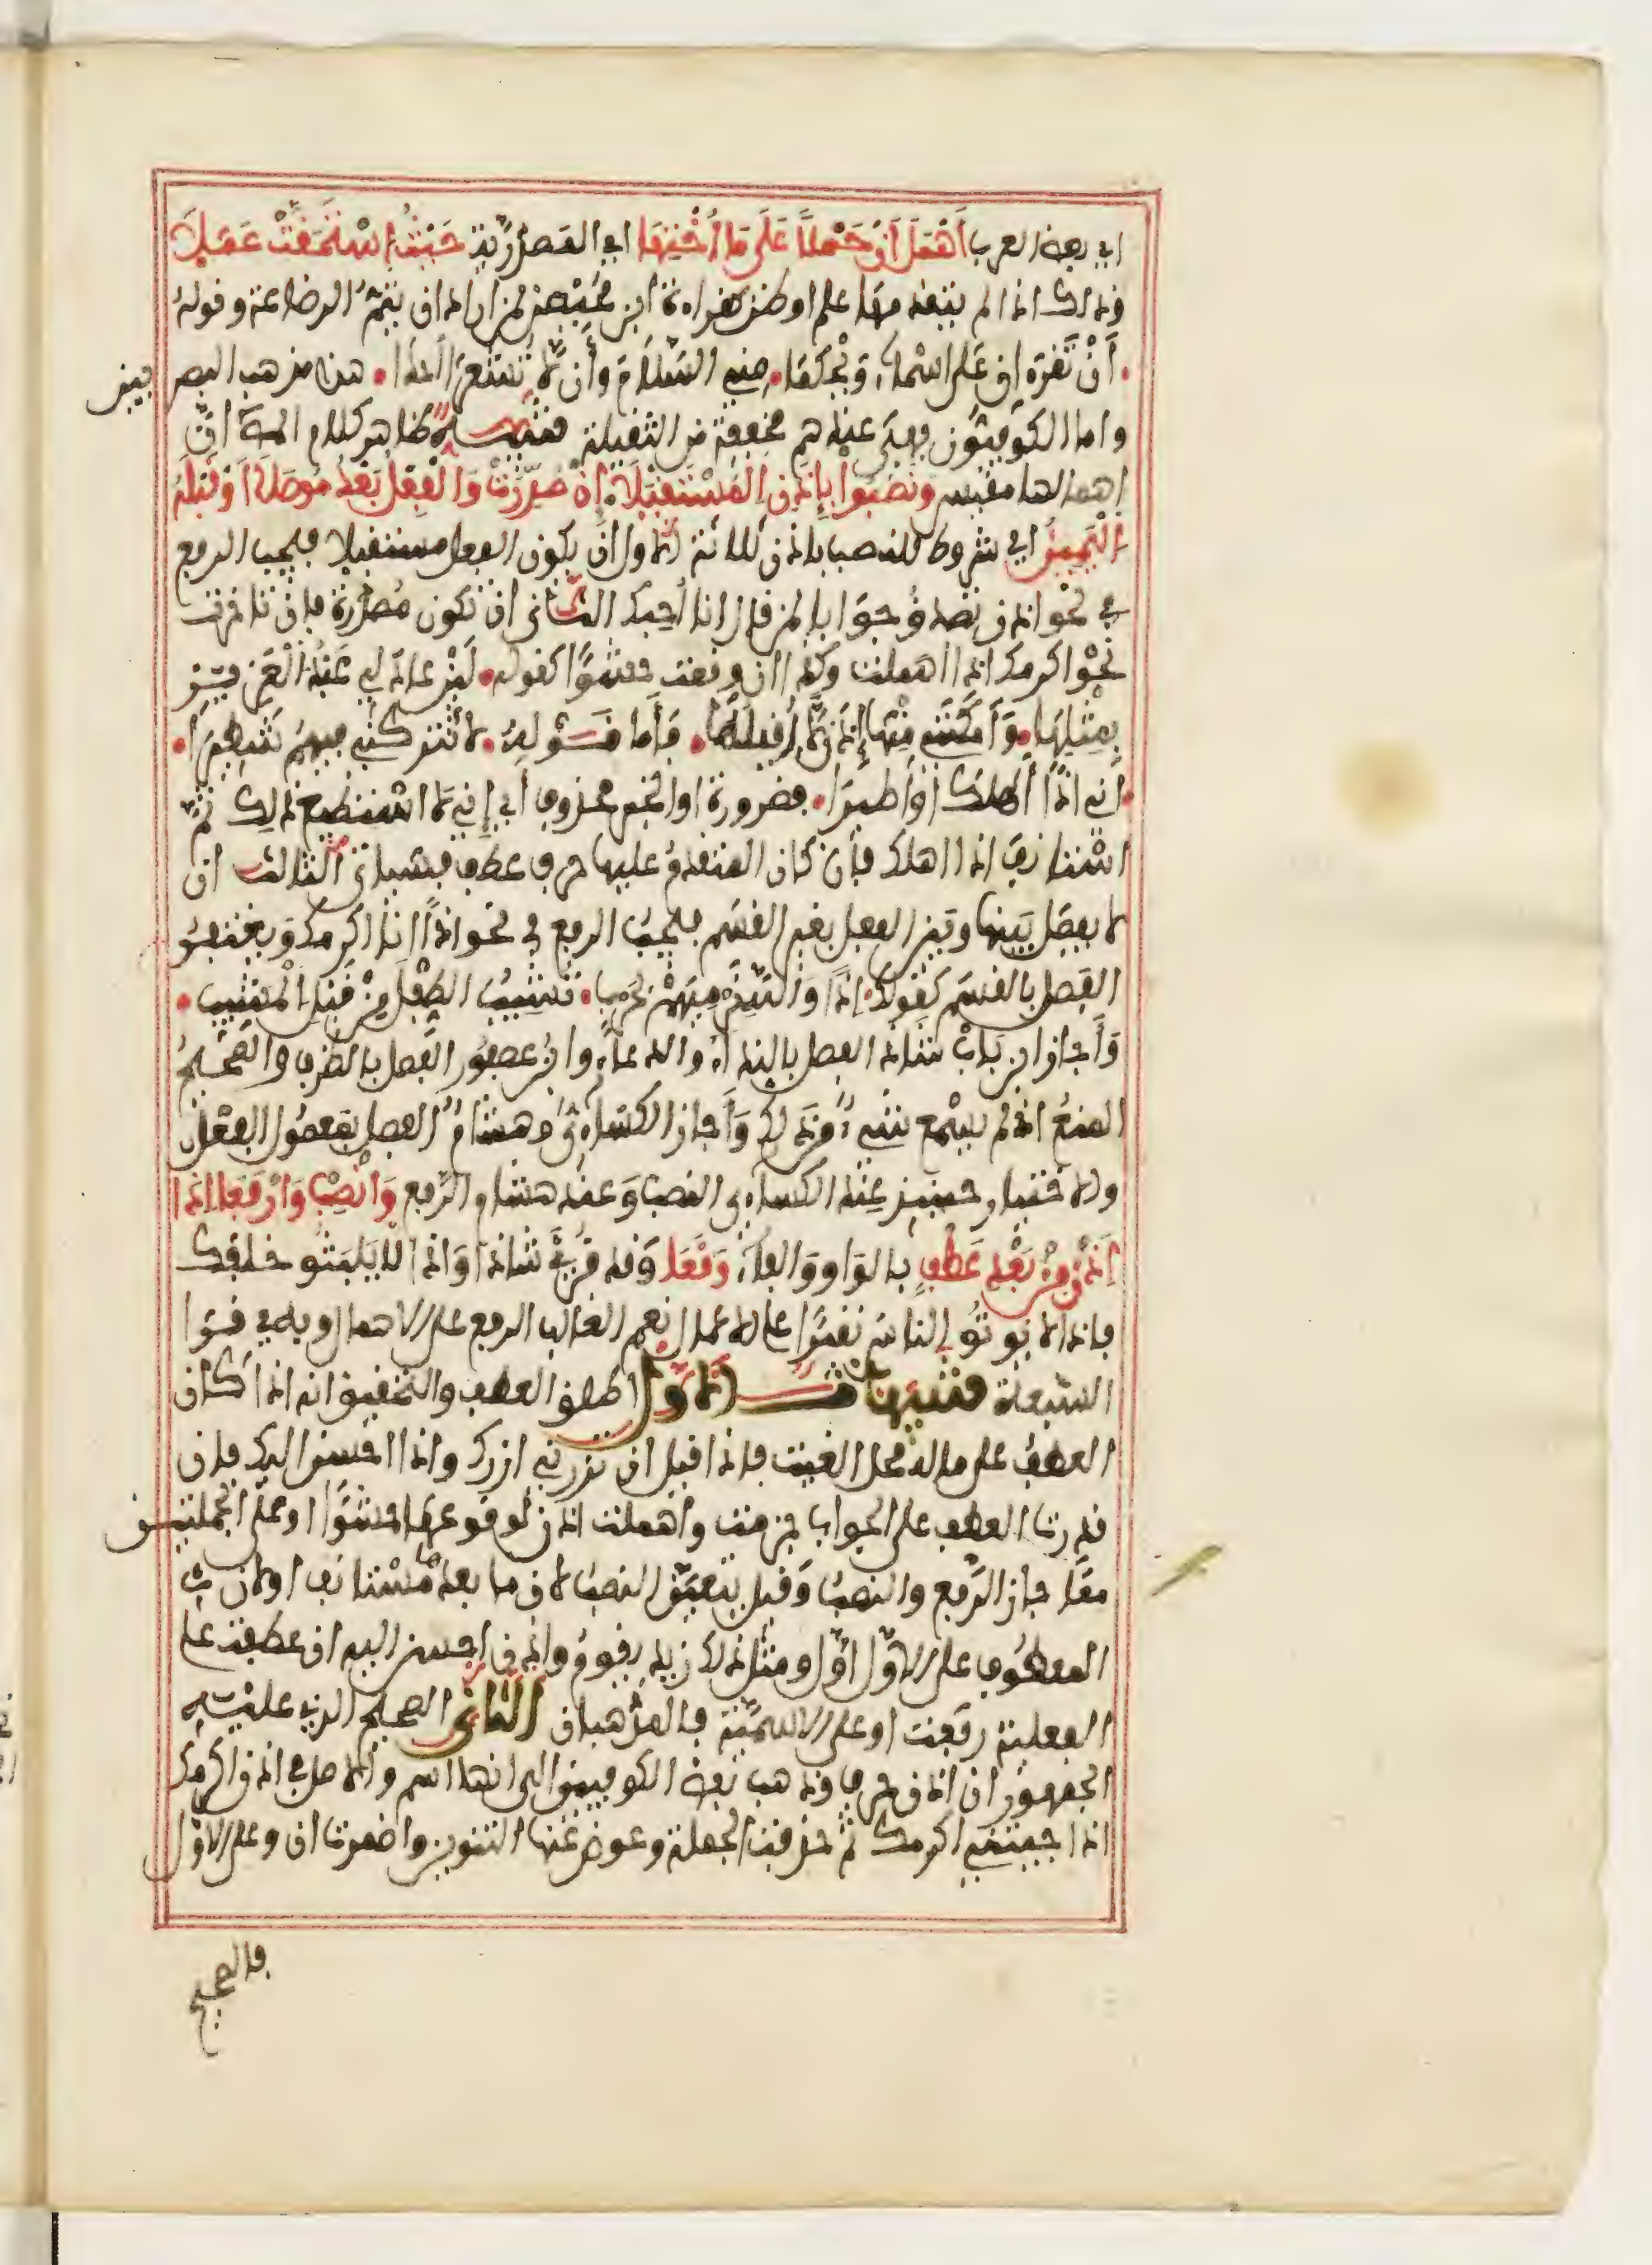 اي بعض العرب أَهْمَلَ أَنْ حَمْلاً عَلَى مَا أُخْتِهَا اي المصدرية حَيْثُ اسْتَحَقَّتْ عَمَلاَ
وذلك اذا لم يتقدمها علم او ظن كقراءة ابن محيصن لمن اراد ان يتمُّ الرضاعة وقوله
أَنْ تَقْرَءانِ عَلَى أسْمَاءَ وَيْحَكُمَا • مني السّلاَمَ وأن لاَ تُشْعِرَا أحدا • هذا مذهب البصريين
واما الكوفيّون فهي عندهم مخففة من الثقيلة تنبيه ظاهر كلام المص انّ
اهمالها مقيس وَنَصَبُوا بِإِذَنِ الْمُسْتَقْبَلاَ إِنْ صُدِّرَتْ وَالْفِعْلُ بَعْدُ مُوصَلاَ أوْ قَبْلَهُ
الْيَمِينُ اي شروط النصب باذن ثلاثة الاول أن يكون الفعل مستقبلا فيجب الرفع
في نحو اذن تصدق جوابا لمن قال انا أُحبك الثاني ان تكون مصدّرة فإن تاخرت
نحو اكرمك اذا اهملت وكذا ان وقعت حشوًا كقوله • لَئِن عاد لي عَبْدُ الْعَزِيزِ
بِمِثْلِهَا • وَأَمْكَنَنِي مِنْهَا إِذَن لاَ أُقِيلُهَا • فَأَما قَوْلهُ • لا تتركنّي فيهم شَطِيرَا •
• اني اذًا أَهْلِكَ أَوْ أَطِيرَا • فضرورة او الخبر محذوف أي إني لا استطيع ذلك ثمّ
استأنف اذا اهلك فإن كان المتقدم عليها حرف عطف فسيأتي الثالث ان
لا يفصل بينها وبين الفعل بغير القسَم فيجب الرفع في نحو اذًا انا اكرمك ويغتفر
الفصل بالقسم كقوله • إذًا وَاللَّهِ نَرْمِيَهُمْ بِحَرْبٍ • تُشِيبُ الطِّفْلَ مِنْ قَبْلِ الْمَشِيبِ •
وَأجاز ابن بابشاذ الفصل بالنداء والدعاء وابن عصفور الفصل بالظرف والصحيح
المنعُ اذ لم يسمع شيء من ذلك وَأجاز الكساءي وهشام الفصل بمعمول الفعل
والاختيار حينئذ عند الكساءي النصب وعند هشام الرفع وَانْصِبْ وَارْفَعَا إِذَا
إِذَنْ مِنْ بَعْدِ عَطْفٍ بالواو والفاء وَقَعَا وقد قرئ شاذا وَاذا لا يلبثو خلافك
فإذا لا يوتو الناس نقيرًا على الاعمال نعم الغالب الرفع على الاهمال وبه قرا
السّبعة تنبيهات الاول اطلق العطف والتحقيق انه اذا كان
العطف على ما له محل الغيت فاذا قيل ان تزرني ازرك واذا احسن اليك فان
قدرت العطف على الجواب جزمت واهملت اذن لوقوعها حشوًا او على الجملتين
معًا جاز الرّفع والنصب وقيل يتعيّن النصب لان ما بعدها مستانف او لان
المعطوف على الاوّل اوّل ومثل ذلك زيد يقوم واذن احسن اليه ان عطفت على
الفعلية رفعت او على الاسميّة فالمذهبان الثاني الصحيح الذي عليه
الجمهور ان اذن حرف وذهب بعض الكوفيين الى انها اسم والاصل في اذن اكرمك
اذا جيتني اكرمك ثم حذفت الجملة وعوض عنها التنوين واضمرت ان وعلى الاوّل
فالصحيح